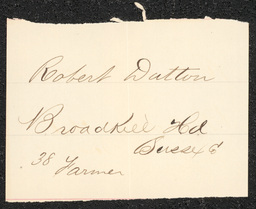 Robert Dutton
Broadkill Hd
Sussex C
38
Farmer